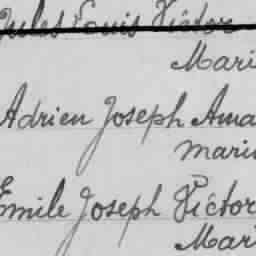 Jules Louis Victor
Mari
Adrien Joseph Ama
Mari
Emile Joseph Victor
Mari